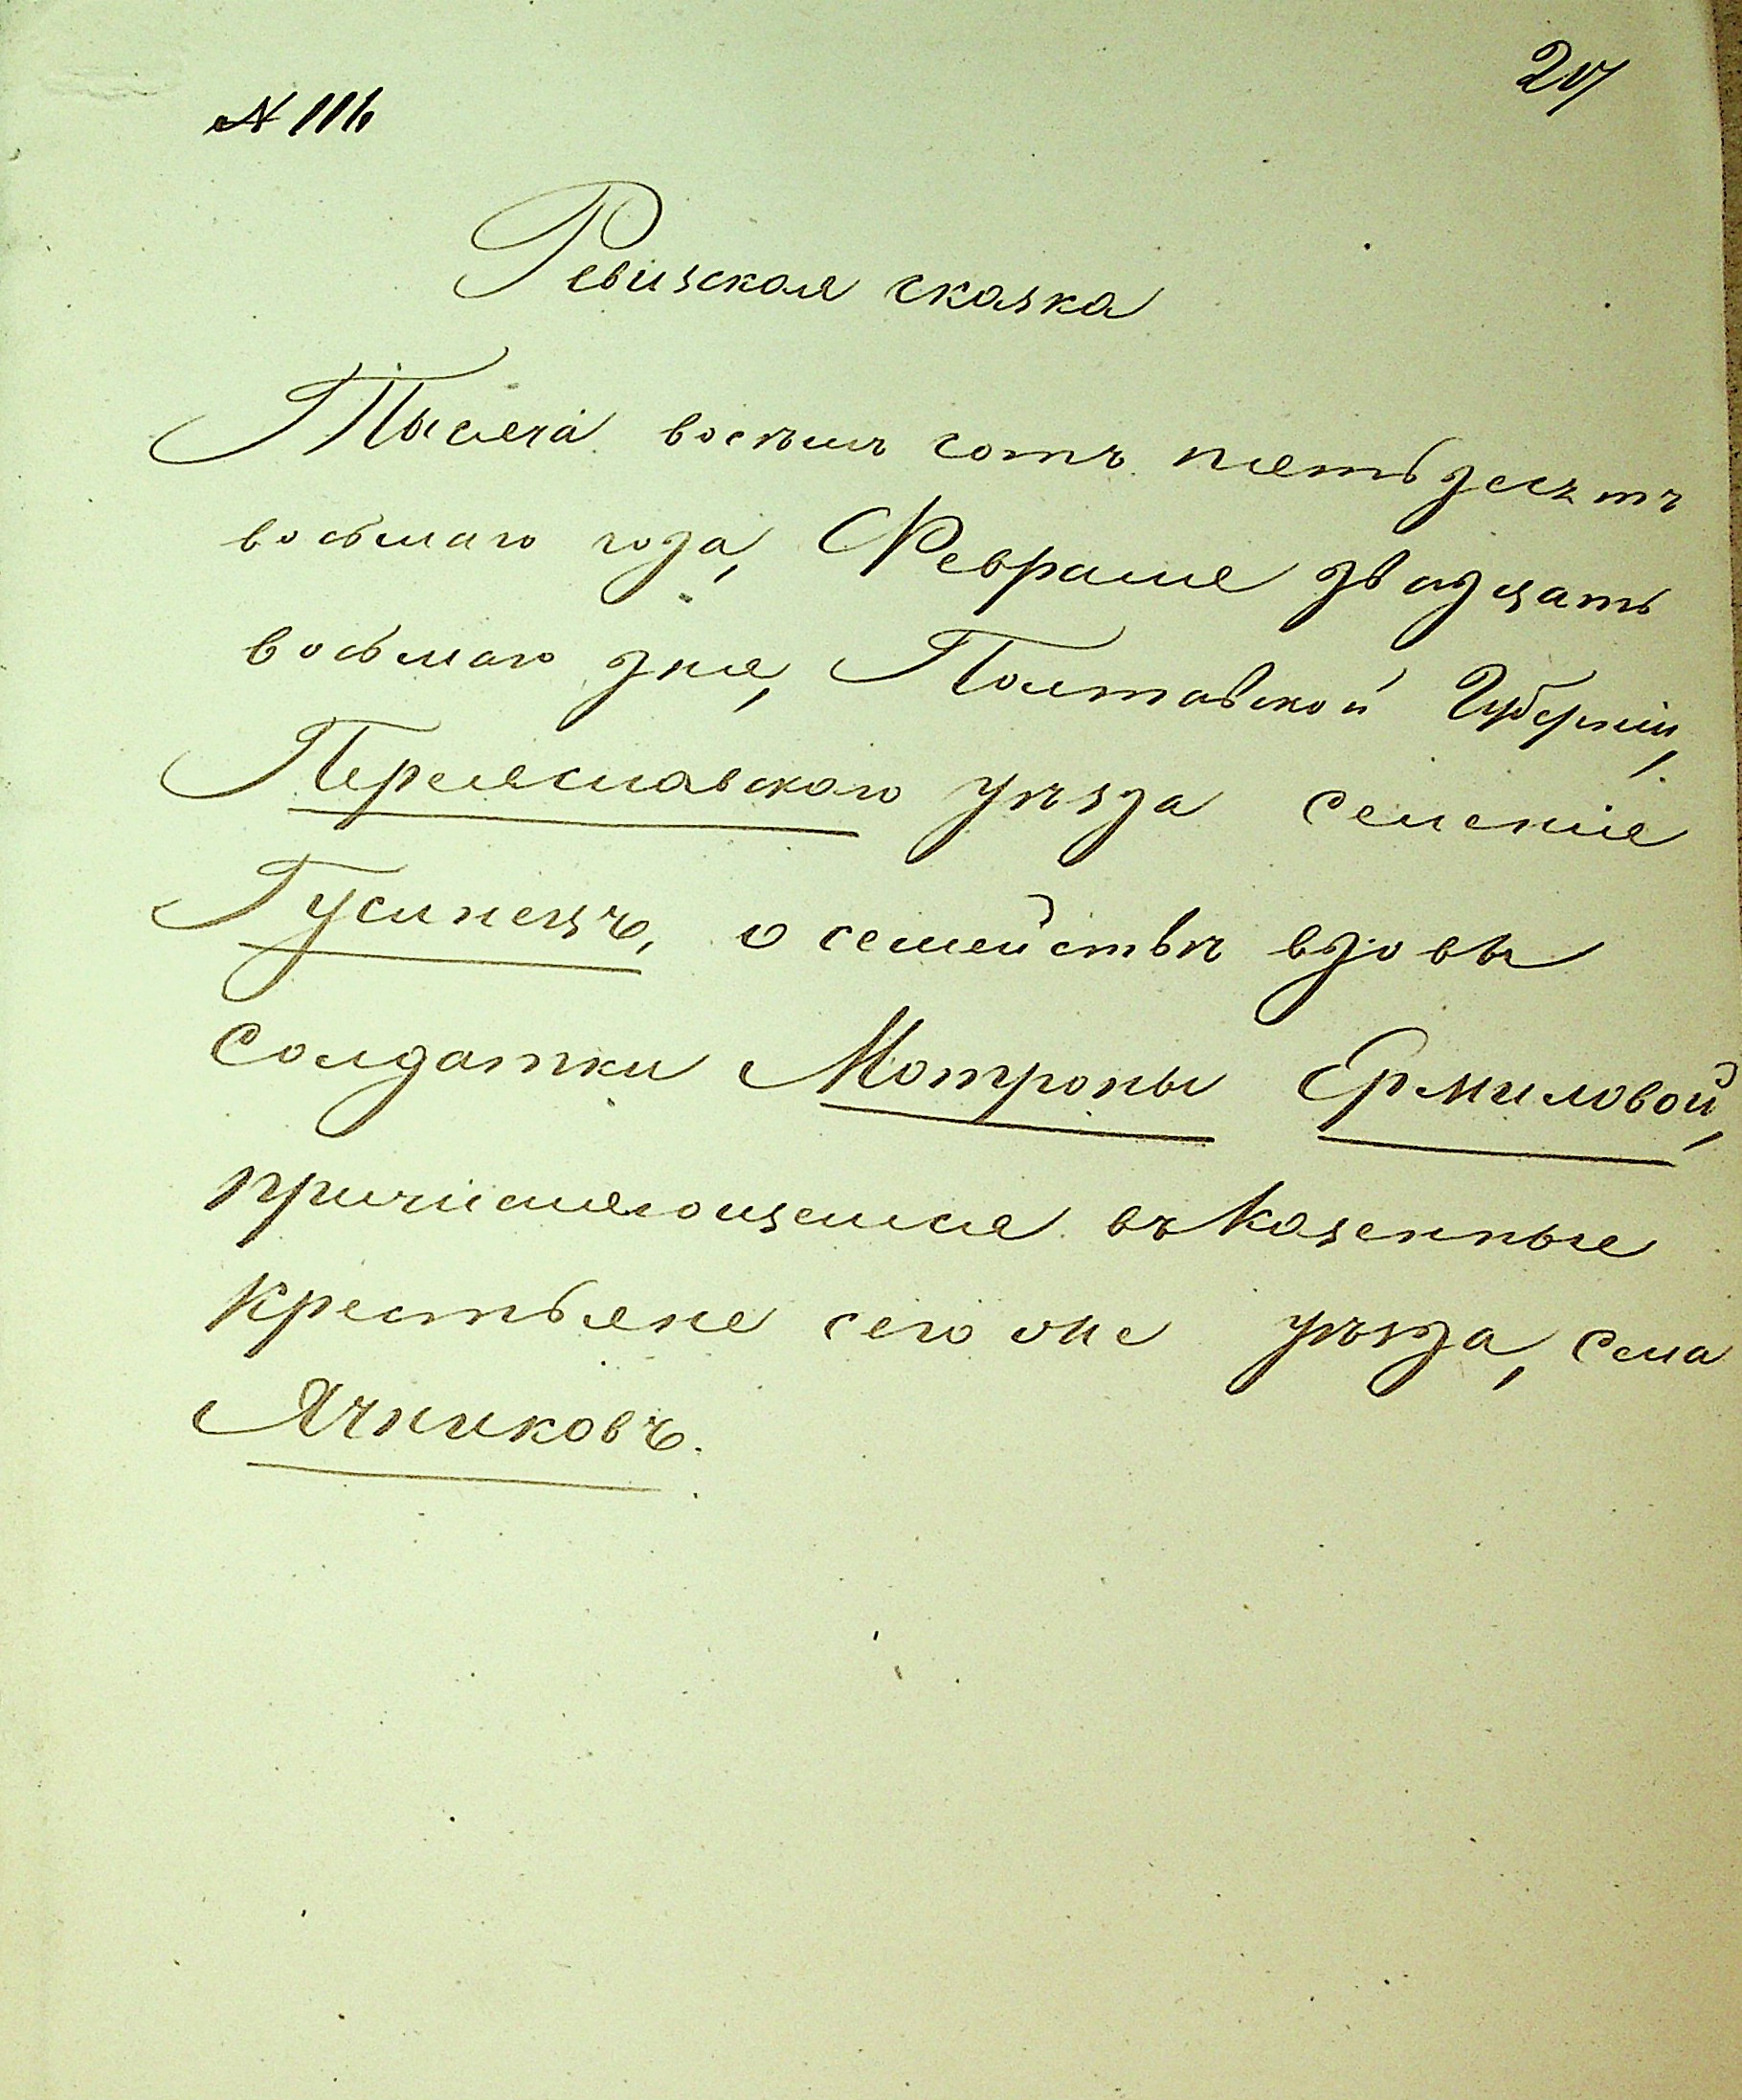 207
№ 116
Ревизская сказка
Тысяча восѣмь сотъ пятьдесятъ
восьмаго года, Февраля двадцать
восьмаго дня, Полтавской Губерніи,
Переяславскаго уѣзда селенія
Гусинецъ, о семействѣ вдовы
солдатки Мотроны Ермиловой,
причисляющемся въ казенные
крестьяне сего же уѣзда, села
Ячниковъ.